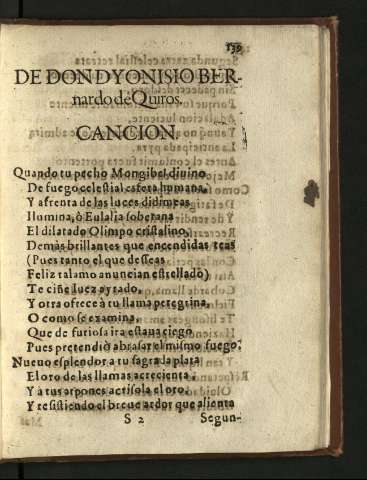 139
DE DON DYONISIO BER-
nardo de Quiros.
CANCION.
Quando tu pecho Mongibel diuino
De fuego celestial esfera humana,
Y afrenta de las luces didimeas
Ilumina, ò Eulalia soberana
El dilatado Olimpo cristalino,
Demàs brillantes que encendidas teas
(Pues tanto el que desseas
Feliz talamo anuncian estrellado)
Te ciñe Iuez ayrado,
Y otra ofrece à tu llama peregrina,
O como se examina,
Que de furiosa ira estaua ciego
Pues pretendiò abrasar el mismo fuego.
Nueuo esplendor a tu sagrada plata
El oro de las llamas acrecienta,
Y a tus arpones acrisola el oro,
Y resistiendo el breue ardor que alienta
S 2 Segun-